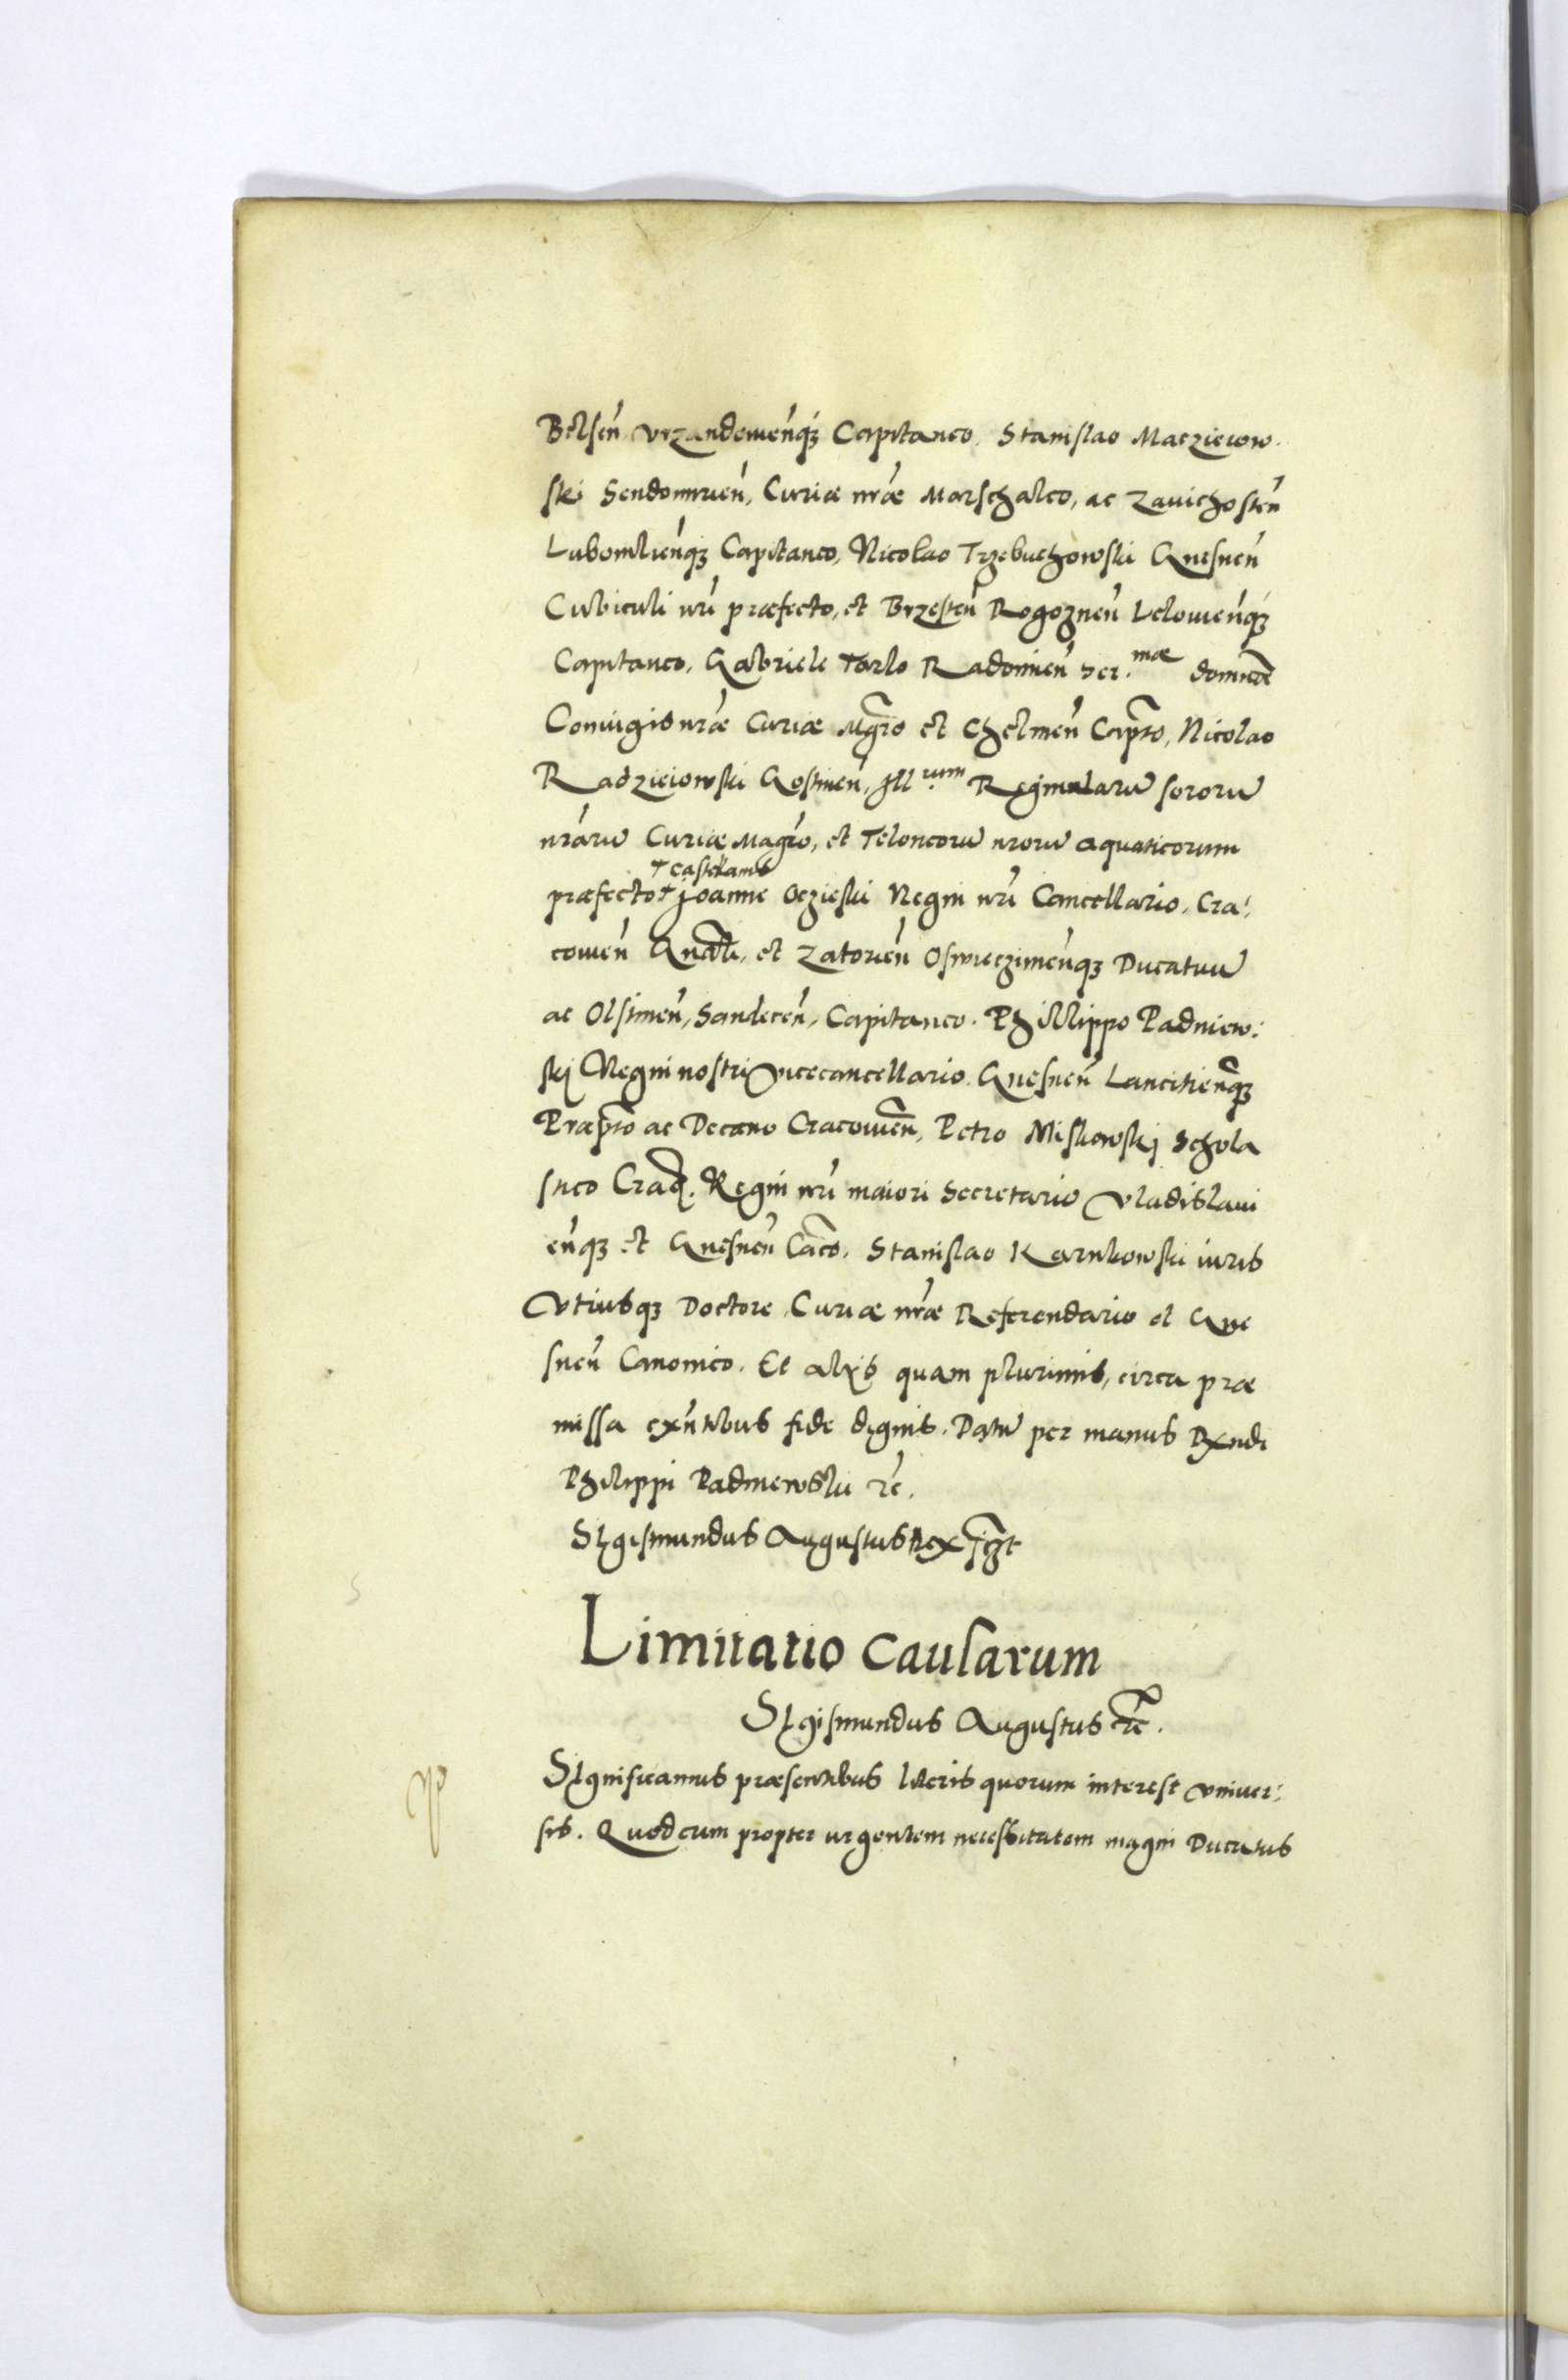 Belsen̄ vrzandowien̄qꝫ Capitaneo. Stanislao Macziejow
ski Sendomirien̄, Curiæ nr̄æ Marschalco, ac Zauichosten̄
Lubomlien̄qꝫ Capitaneo, Nicolao Trzebuchowski Gnesnen̄
Cubiculi nr̄i præfecto, et Brzesten̄ Rogoznen̄ Lelowien̄qꝫ
Capitaneo, Gabriele Tarlo Radomien̄ Ser.mae dominæ
Coniugis nr̄æ Curiæ Mgr̄o et Chelmen̄ Capn̄o, Nicolao
Radzieiowski Gostinen̄, Ill.rum Reginularū sororū
nr̄arū Curiæ Magr̄o, et Teloneorū nrorū aquaticorum
† castellanis
præfecto † Joanne Oczieski Regni nr̄i Cancellario, Cra:
couien̄ Gnāli, et Zatorien̄ Oswieczimen̄qꝫ Ducatuū
ac Olstinen̄, Sandecen̄, Capitaneo. Phillippo Padniew:
skj Regni nostri vicecancellario. Gnesnen̄ Lancitien̄qꝫ
Præpto ac Decano Cracouien̄, Petro Miskowskj Schola
stico Crac. Regni nr̄i maiori Secretario Vladislaui
en̄qꝫ et Gnesnen̄ Cāco. Stanislao Karnkowski iuris
Vtriusqꝫ Doctore Curiæ nr̄æ Referendario et Gne
snen̄ Canonico. Et alijs quam plurimis, circa præ
missa exn̄tibus fide dignis. Datū per manus Rxndi
Philippi Padniewski ꝛc̄.
Sigismundus Augustus Rex sc̄pt
Limitatio Causarum
Sigismundus Augustus etc̄.
Significamus præsentibus literis quorum interest vniuer:
sis. Quod cum propter urgentem necessitatem magni Ducatus